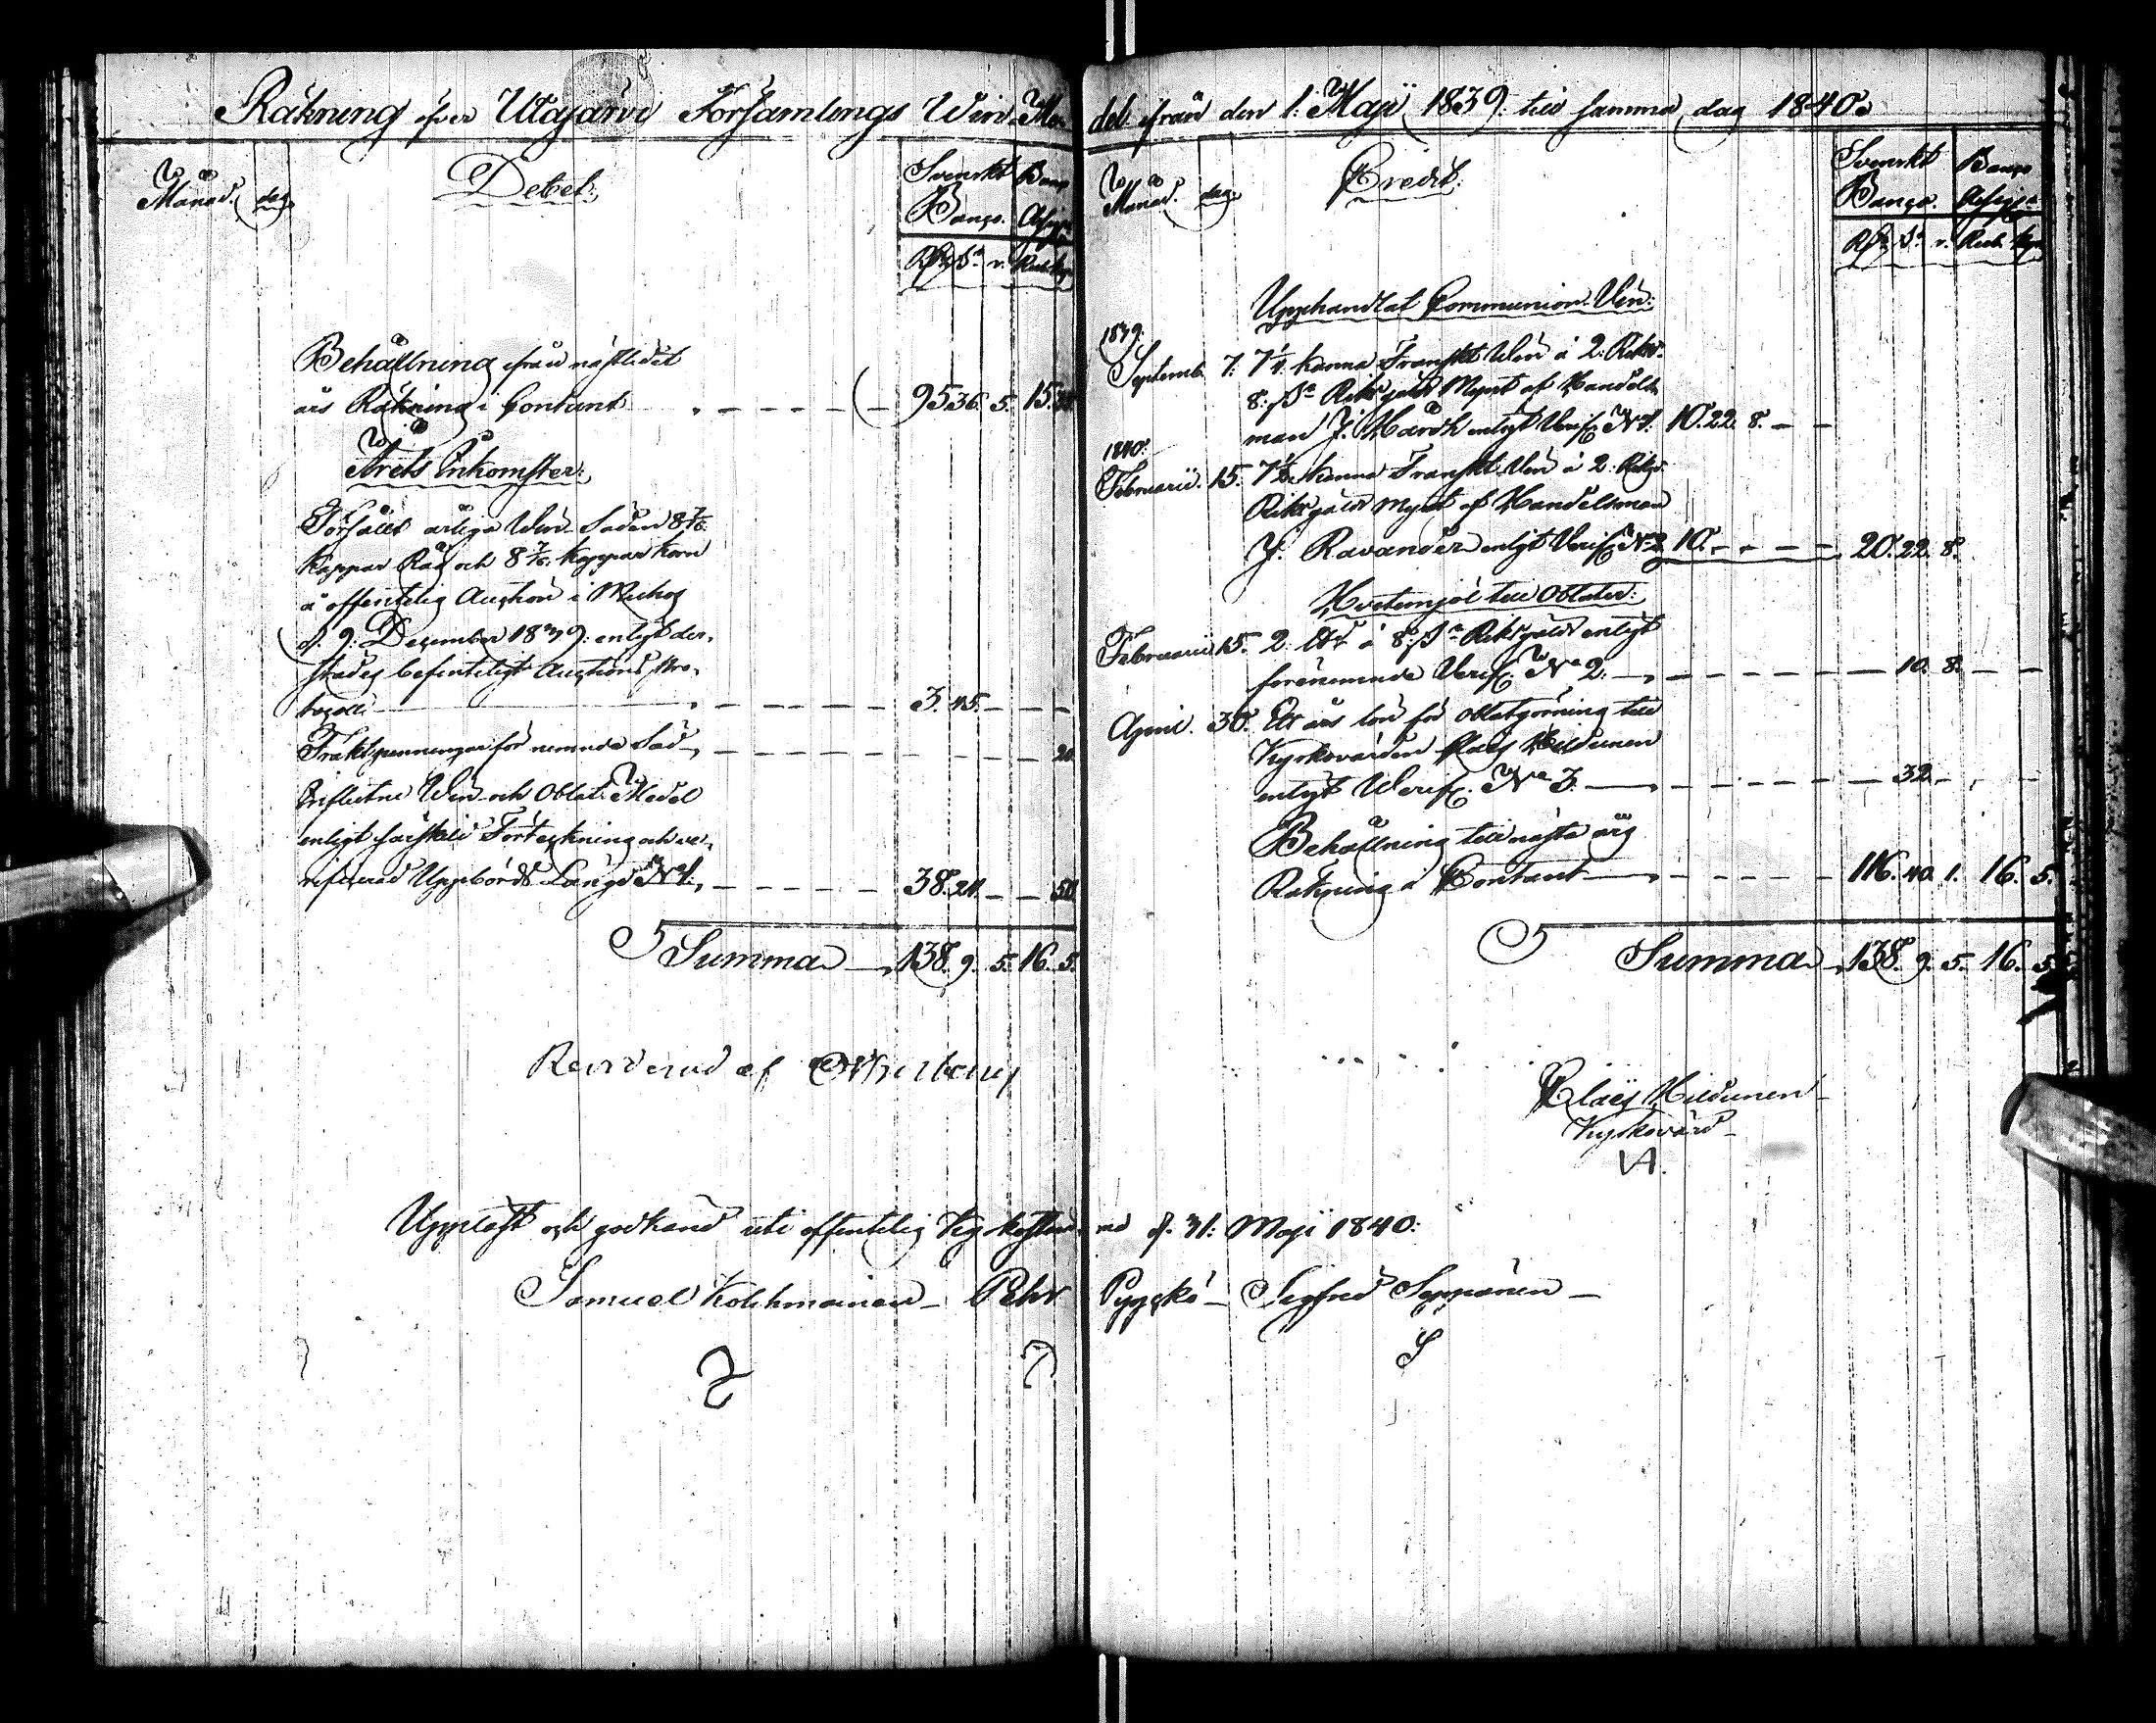 Räkning öfver Utajärvi Församlings Win-Me-
Månad. dag. Debet. Svenskt Banco. Banco Assign:
Rd. s. r. Rub. kop
Behållning ifrån nästledet
års Räkning i Contant 95 36. 5. 15.
Årets Inkomster.
Försåldt årliga Win-Säden 8 7/8.
kappar Råg och 8 7/8. kappar Korn
å offentelig Auction i Muhos
d. 9. December 1839. enligt der-
städes befinteligt Auctions Pro-
tocoll 3. 45.
Fraktpenningar för nemnde Säd 20.
Influtne Win och Oblat Medel
enligt särskild Förteckning och ve-
rificerad Uppbörds Längd N:o 1. 38. 24. 50.
Summa 138. 9. 5. 16. 5.
Reviderad af
del ifrån den 1. Maji 1839. till samma dag 1840.
Månad. dag. Credit. Svenskt Banco. Banco Assign:
Rd. s. r. Rub. kop
Upphandlat Communion-Vin:
1839.
Septemb. 7. 7 1/4 kanna Franskt Win á 2. Riksd.
8. s. Riksgälds Mynt af Handels-
man J. Mårdh enligt Verif. N:o 1. 10. 22. 8.
1840.
Februarii. 15. 7 1/2 kanna Franskt Vin á 2. Riksd.
Riksgälds Mynt af Handelsman
J. Ravander enligt Verif. N:o 2 10. 20. 22. 8.
Hvetemjöl till Oblater:
Februarii 15. 2. á 8. s. Riksgälds enligt
förenemnde Verif. N:o 2. 10. 8.
April. 30. Ett års lön för oblatgörning till
Kyrkovärden Claës Hildunen
enligt Verif. N:o 3. 32.
Behållning till nästa års
Räkning i Contant 116. 40. 1. 16. 5.
Summa 138. 9. 5. 16. 5.
Claës Hildunen
Kyrkovärd
Uppläst och godkänd uti offentelig Kyrkostäm-
ma d. 31. Maji 1840.
Samuel Kolehmainen Pehr Pyyckö Sigfred Seppänen